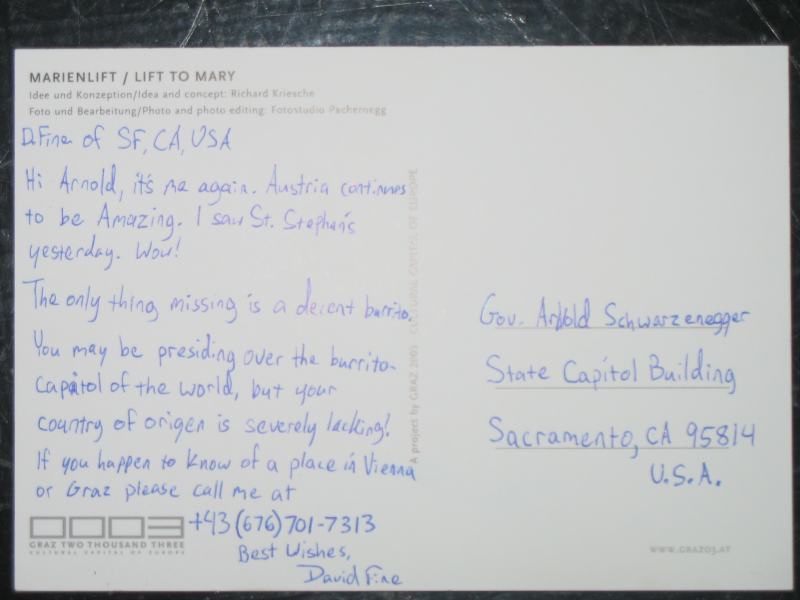 MARIENLIFT / LIFT TO MARY
Idee und Konzeption/Idea and concept: Richard Kriesche
Foto und Bearbeitung/Photo and photo editing: Fotostudio Pachernegg
D.Fine of SF, CA, USA
Hi Arnold, it's me again. Austria continues
to be Amazing. I saw St. Stephan's
yesterday. Wow!
The only thing missing is a decent burrito.
You may be presiding over the burrito-
capitol of the world, but your
country of origen is severely lacking!
If you happen to know of a place in Vienna
or Graz please call me at
+43 (676) 701-7313
Best Wishes,
David Fine
0003
GRAZ TWO THOUSAND THREE
CULTURAL CAPITAL OF EUROPE
A project by GRAZ 2003 CULTURAL CAPITAL OF EUROPE
Gov. Arnold Schwarzenegger
State Capitol Building
Sacramento, CA 95814
U.S.A.
WWW.GRAZ03.AT